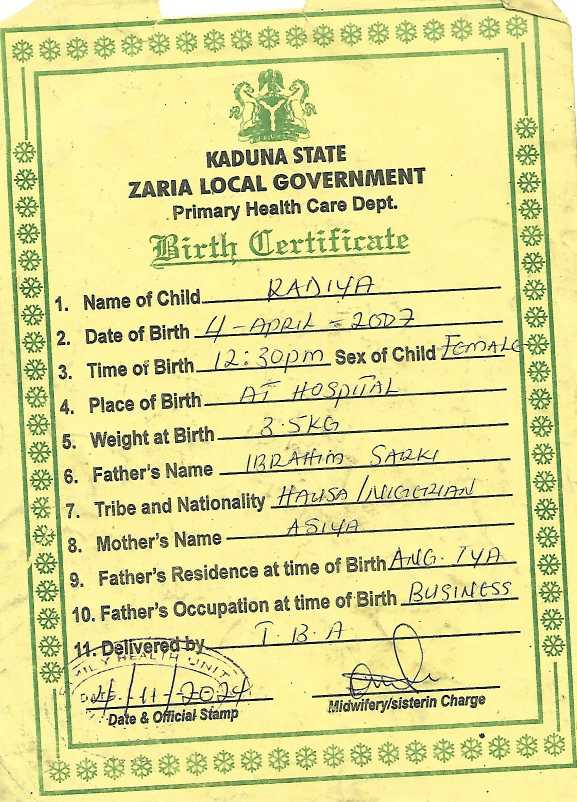 KADUNA STATE
ZARIA LOCAL GOVERNMENT
Primary Health Care Dept.
Birth Certificate
1. Name of Child RADIYA
2. Date of Birth 4-APRIL-2007
3. Time of Birth 12:30pm Sex of Child FEMALE
4. Place of Birth AT HOSPITAL
5. Weight at Birth 3.5KG
6. Father's Name IBRAHIM SARKI
7. Tribe and Nationality HAUSA/NIGERIAN
8. Mother's Name ASIYA
9. Father's Residence at time of Birth ANG. IYA
10. Father's Occupation at time of Birth BUSINESS
11. Delivered by T.B.A
FAMILY HEALTH UNIT
4-11-2024
Date & Official Stamp
Midwifery/sisterin Charge